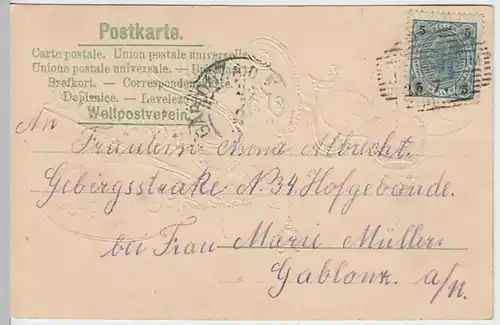 Postkarte.
Carte postale. Union postale universelle
Unione postale universale. —
Brefkort. — Corresponden
Dopisnice. — Levelez
Weltpostverein
5 5
5 5
An Fräulein Anna Albrecht.
Gebirgsstraße N.34. Hofgebäude.
bei Frau Marie Müller.
Gablonz. a/N.